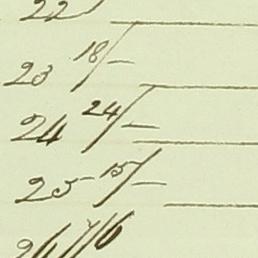 22
23 18/-
24 24/-
25 15/-
26 7/6